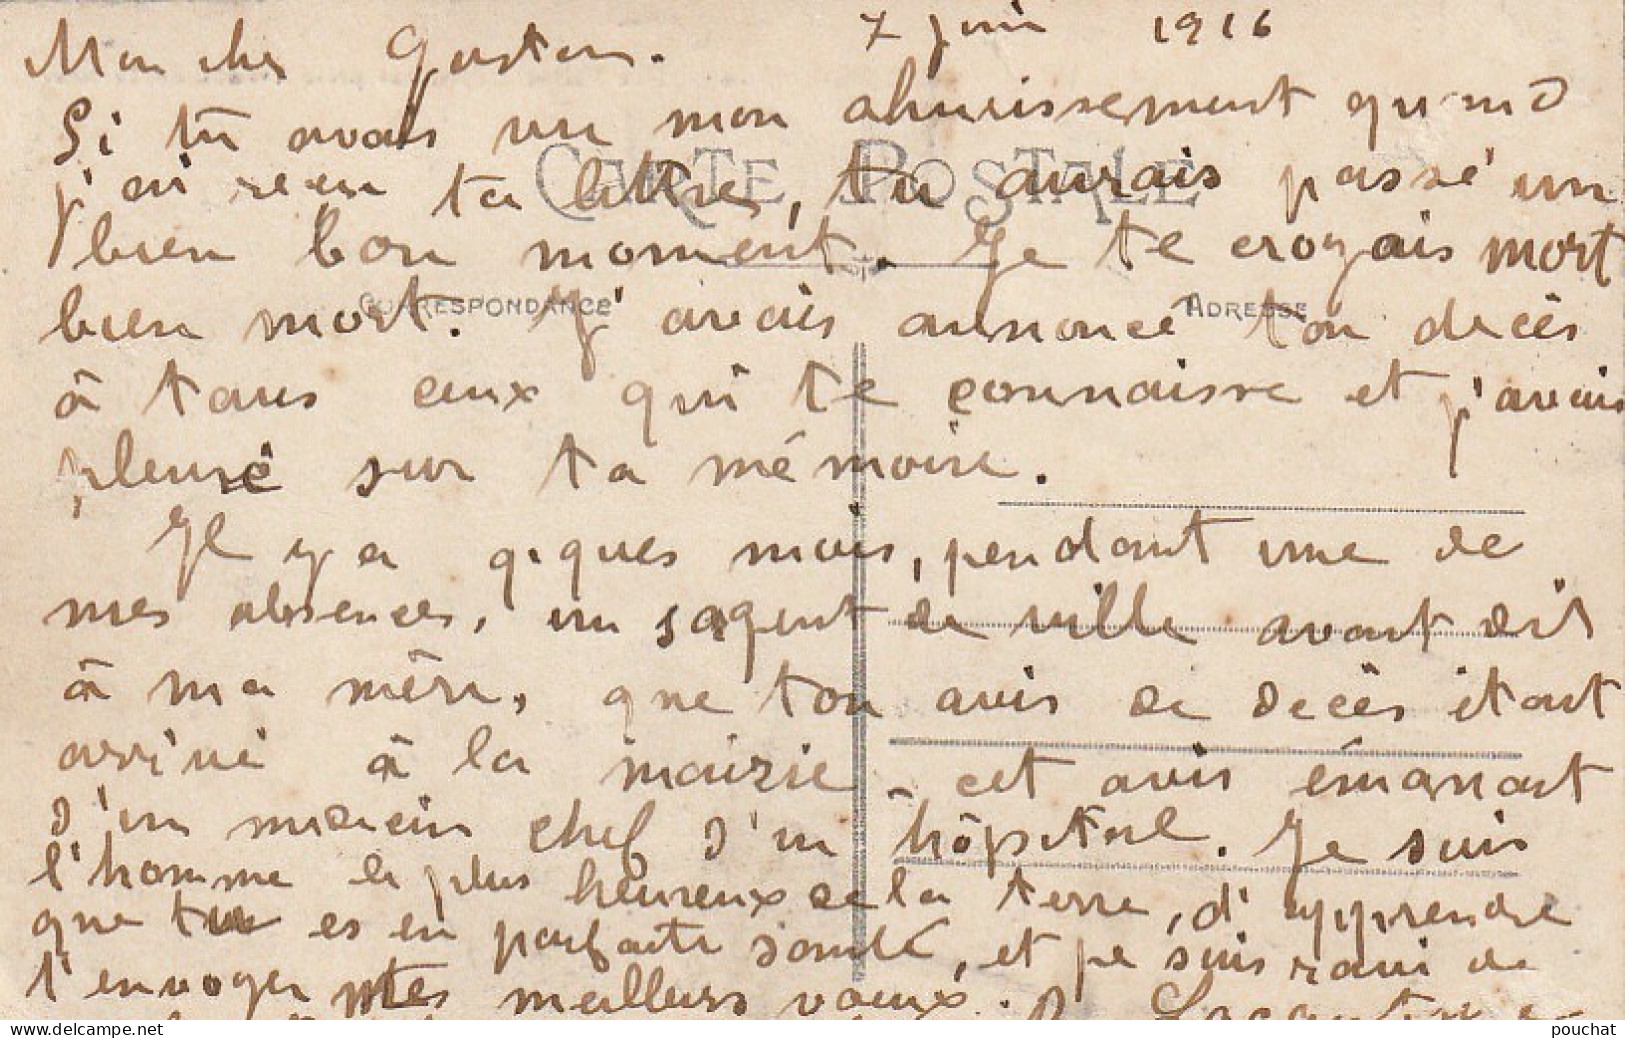 Mon cher Gaston. 7 juin 1916
Si tu avais vu mon ahurissement quand
j'ai reçu ta lettre, tu aurais passé un
CARTE POSTALE
bien bon moment. Je te croyais mort
bien mort. J'avais annoncé ton decès
CORRESPONDANCE ADRESSE
à tous ceux qui te connaisse et j'avais
pleuré sur ta mémoire.
Il y a q.ques mois, pendant une de
mes absences, un sagent de ville avait dit
à ma mère, que ton avis de decès était
arrivé à la mairie - cet avis émanant
d'un medecin chef d'un hôpital. Je suis
l'homme le plus heureux de la terre, d'apprendre
que tu es en parfaite santé, et je suis ravi de
t'envoyer mes meilleurs voeux.
pouchat